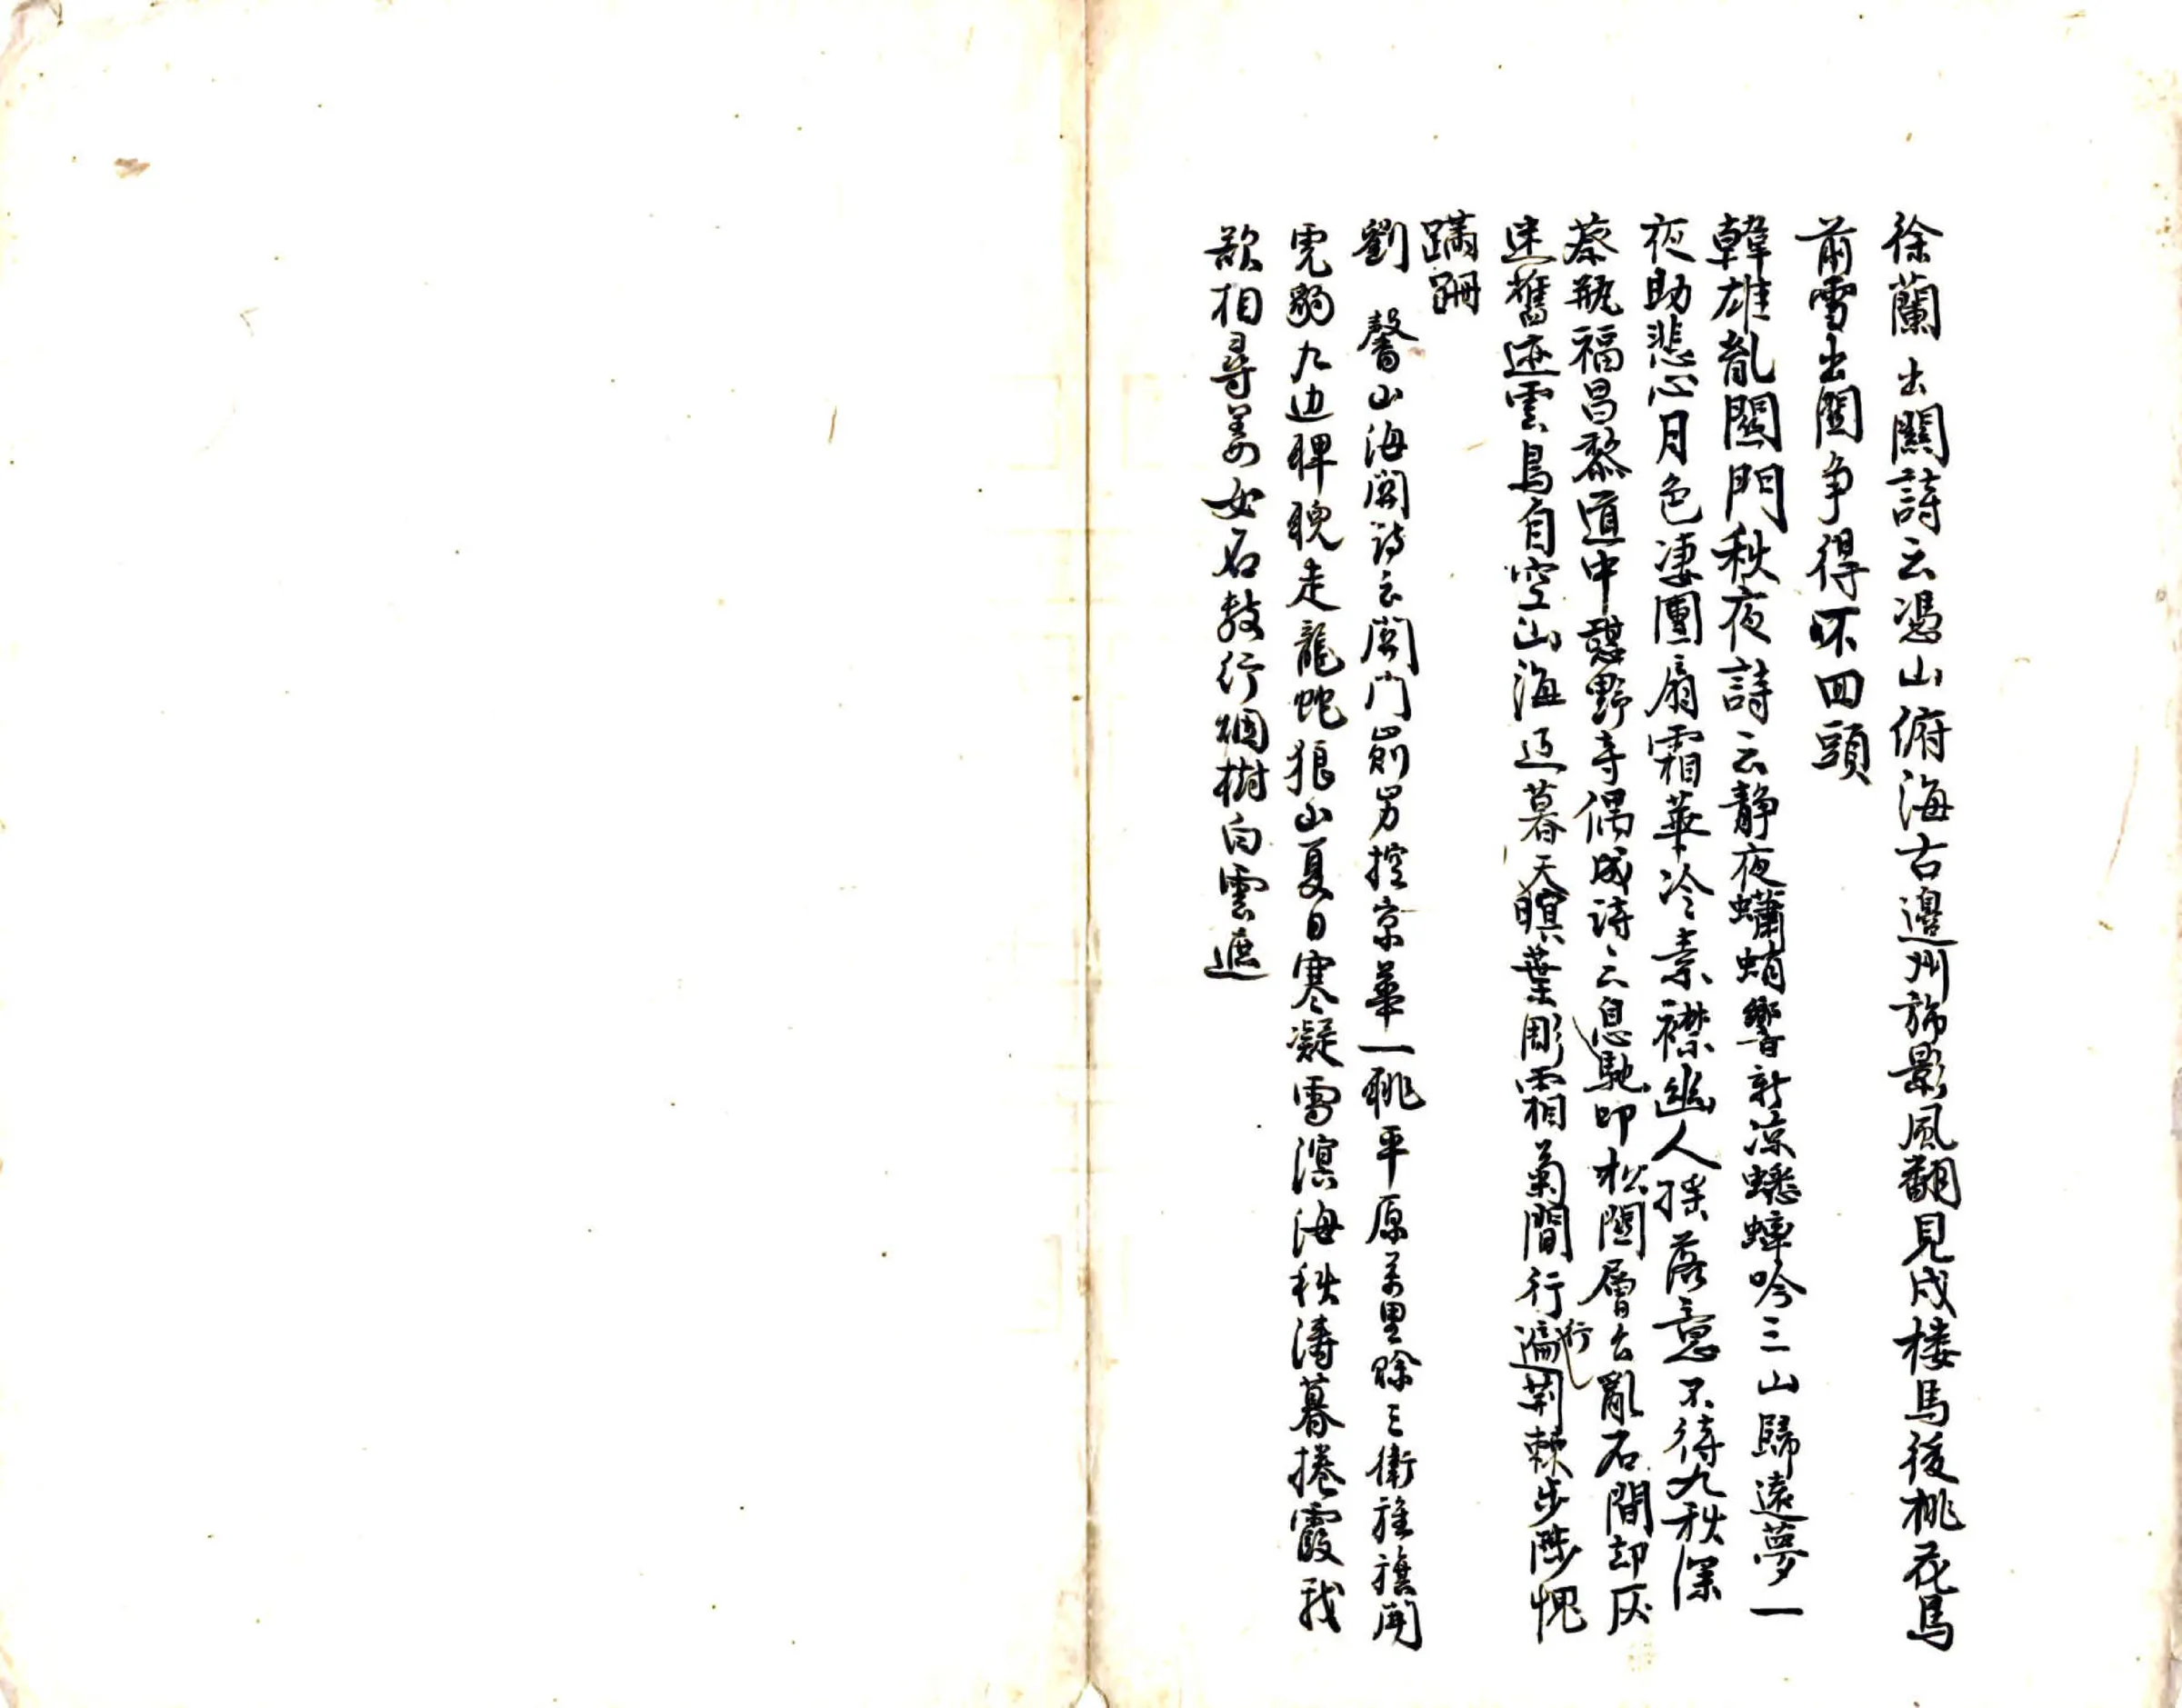 徐蘭出關詩云憑山俯海古邊州旆影風翻見戍楼馬後桃花馬
前雪出關争得不回頭
韓雄胤關門秋夜詩云靜夜蠨蛸響新凉蟋蟀吟三山歸遠夢一
夜助悲心月色凄團扇霜華冷素襟幽人搖落意不待九秋深
蔡瓶福昌黎道中憩野寺偶成詩云息馳叩松關層云亂石間却厌
迷舊迹雲鳥自空山海逈暮天瞑葉彫霜菊間行遍荆棘步陟愧
行
蹣跚
劉 馨山海関詩云関门前男控京華一眺平原万里賒三衛旌旗開
虎豹九边睥睨走龍蛇狼山夏日寒凝雪溟海秋濤暮捲霞我
欲相尋姜女石数行烟樹白雲遮